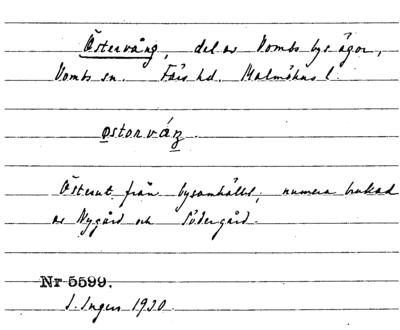 Östervång, del av Vombs bys ägor,
Vombs sn. Färs hd. Malmöhus l.
østorváŋ.
Österut från bysamhället, numera brukad
av Nygård och Södergård.
Nr 5599.
I. Ingers 1930